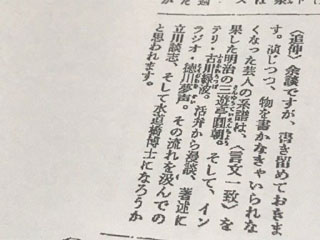 〈追伸〉余談ですが、書き留めておきま
す。演じつつ、物を書かなきゃいられな
くなった芸人の系譜は、〈言文一致〉を
果した明治の三遊亭圓朝。そして、イン
テリ・古川緑波。活弁から漫談、著述に
ラジオ・徳川夢声。その流れを汲んでの
立川談志、そして水道橋博士になろうか
と思われます。